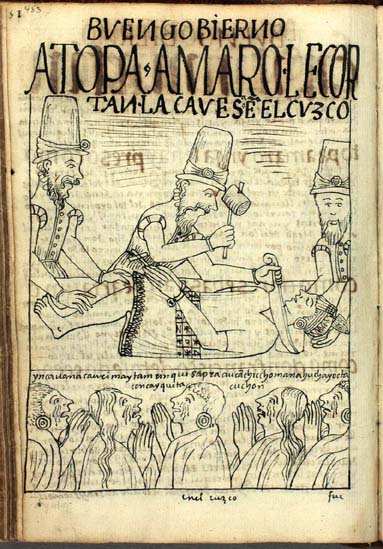 453
BVEN GOBIERNO
A TOPA AMARO·LE COR
TAN·LA CAVESA EN EL CVZCO
ynca uana cauri maytam rinqui sapra aucanchiccho mana huchayocta
concayquita cuchon
en el cuzco
fue